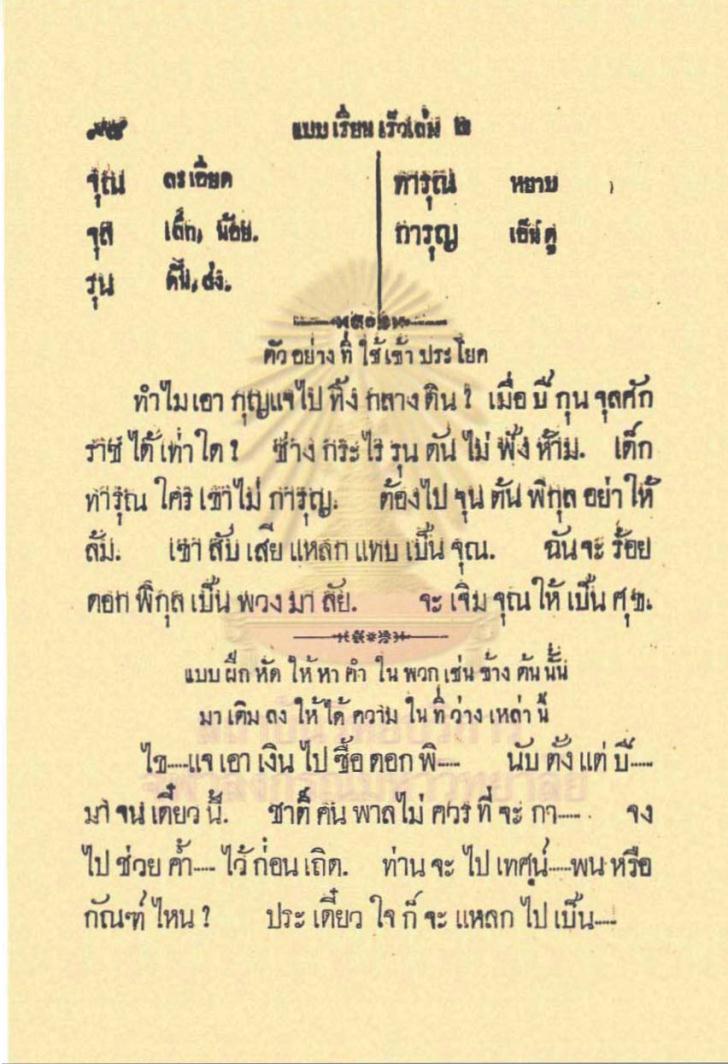 ๙๔ แบบเรียนเร็วเล่ม ๒
จุณ ลเอียด
จุล เล็ก, น้อย.
รุน ดัน, ส่ง.
ทารุณ หยาบ
การุญ เอ็นดู
ตัวอย่างที่ใช้เข้าประโยค
ทำไมเอากุญแจไปทิ้งกลางดิน? เมื่อปีกุนจุลศัก
ราชได้เท่าใด? ช่างกระไรรุนดันไม่ฟังห้าม. เด็ก
ทารุณใครเขาไม่การุญ. ต้องไปจุนต้นพิกุลอย่าให้
ล้ม. เขาสับเสียแหลกแทบเป็นจุณ. ฉันจะร้อย
ดอกพิกุลเป็นพวงมาลัย. จะเจิมจุณให้เป็นศุข.
แบบฝึกหัดให้หาคำในพวกเช่นข้างต้นนั้น
มาเติมลงให้ได้ความในที่ว่างเหล่านี้
ไข....แจเอาเงินไปซื้อดอกพิ.... นับตั้งแต่ปี....
มาจนเดี๋ยวนี้. ชาติคนพาลไม่ควรที่จะกา.... . จง
ไปช่วยค้ำ....ไว้ก่อนเถิด. ท่านจะไปเทศน์....พนหรือ
กัณฑ์ไหน? ประเดี๋ยวใจก็จะแหลกไปเป็น....